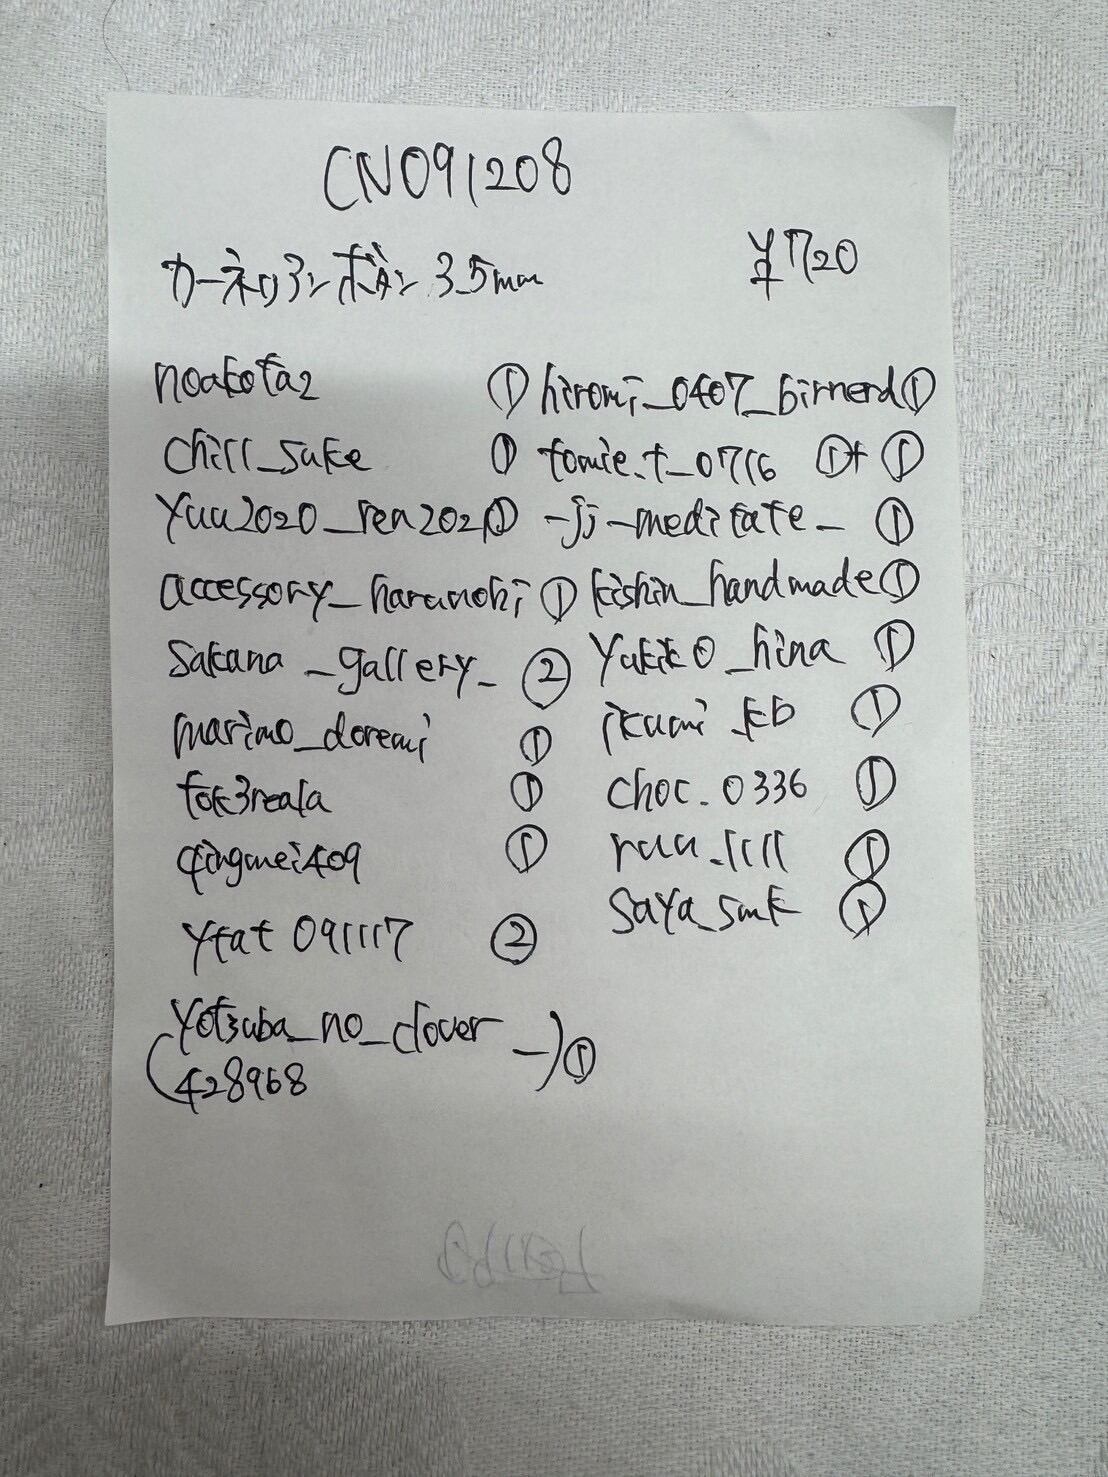 CN091208
カーネリアンボタン 3.5mm ¥1720
noakota2 ①
chill_sake ①
yuu2020_ren202 ①
accessory_haranohi ①
Sakana_gallery_ ②
marimo_doremi ①
tok3reala ①
qingmei409 ①
ytat091117 ②
(yotsuba_no_clover_) ①
428968
hiromi_0407_birnerd ①
tomie.t_0716 ①+①
-jj-meditate_ ①
kishin_handmade ①
Yukiko_hina ①
ikumi_kb ①
choc.0336 ①
ruu.1111 ①
saya_smk ①